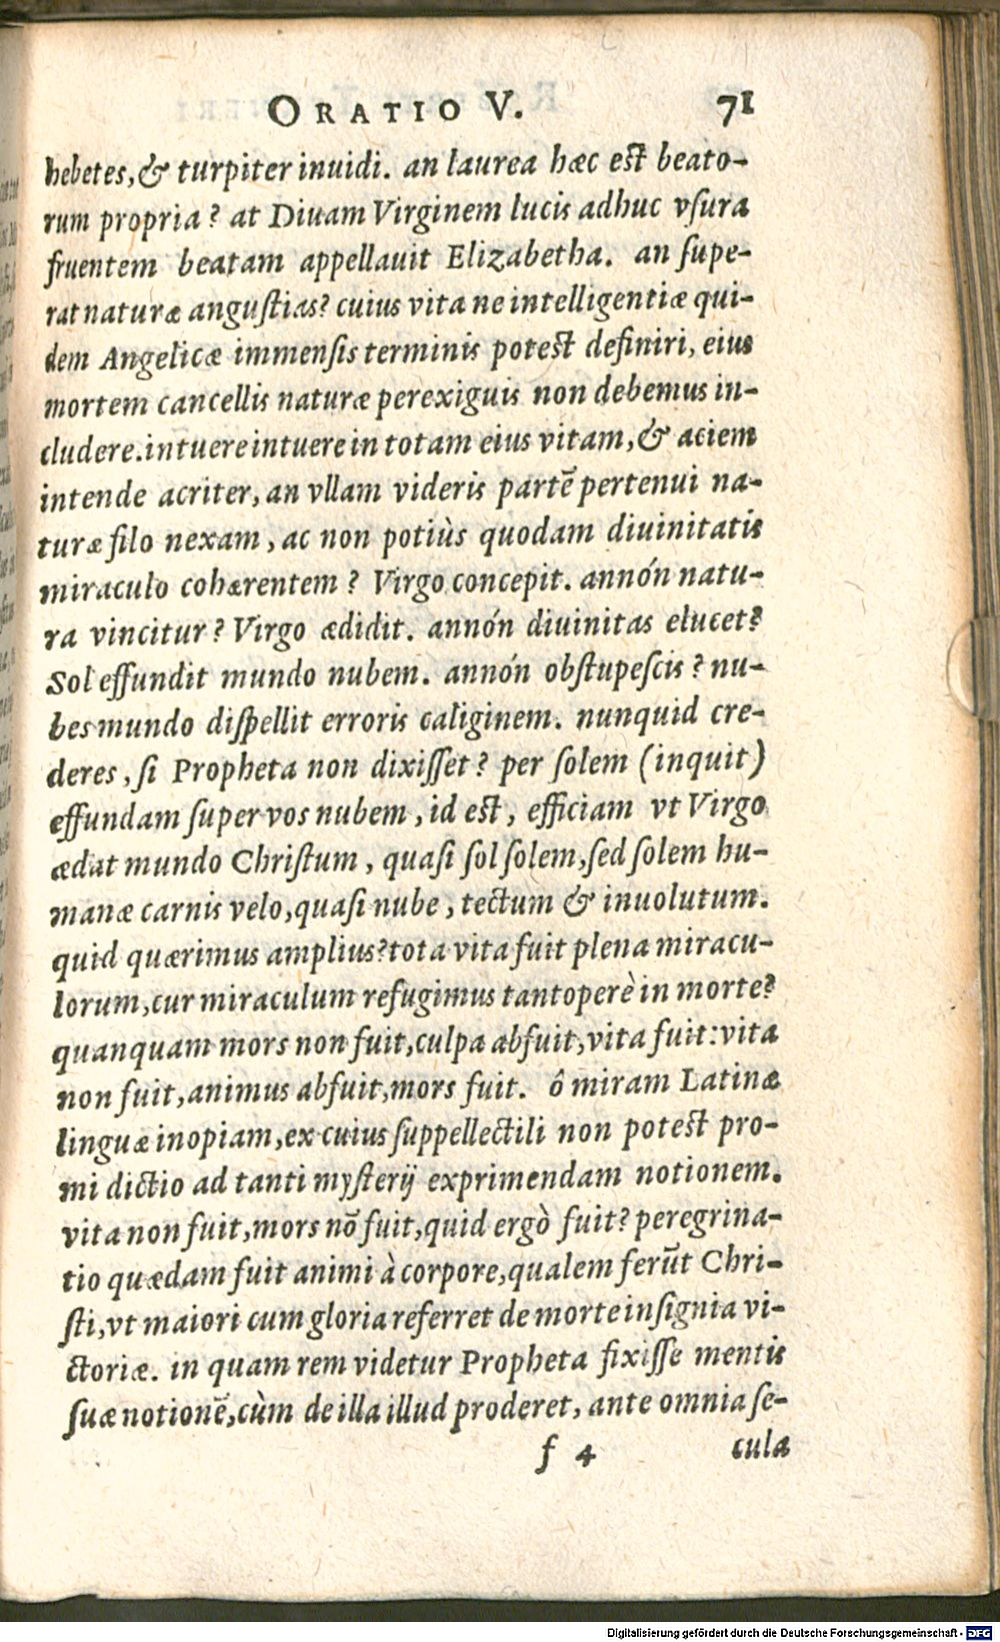 ORATIO V. 71
hebetes, & turpiter inuidi. an laurea hæc est beato-
rum propria? at Diuam Virginem lucis adhuc vsura
fruentem beatam appellauit Elizabetha. an supe-
rat naturæ angustias? cuius vita ne intelligentiæ qui-
dem Angelicæ immensis terminis potest definiri, eius
mortem cancellis naturæ perexiguis non debemus in-
cludere. intuere intuere in totam eius vitam, & aciem
intende acriter, an vllam videris partē pertenui na-
turæ filo nexam, ac non potiùs quodam diuinitatis
miraculo cohærentem? Virgo concepit. annón natu-
ra vincitur? Virgo ædidit. annón diuinitas elucet?
Sol effundit mundo nubem. annón obstupescis? nu-
bes mundo dispellit erroris caliginem. nunquid cre-
deres, si Propheta non dixisset? per solem (inquit)
effundam super vos nubem, id est, efficiam vt Virgo
ædat mundo Christum, quasi sol solem, sed solem hu-
manæ carnis velo, quasi nube, tectum & inuolutum.
quid quærimus amplius? tota vita fuit plena miracu-
lorum, cur miraculum refugimus tantoperè in morte?
quanquam mors non fuit, culpa abfuit, vita fuit: vita
non fuit, animus abfuit, mors fuit. ô miram Latinæ
linguæ inopiam, ex cuius suppellectili non potest pro-
mi dictio ad tanti mysterij exprimendam notionem.
vita non fuit, mors nō fuit, quid ergò fuit? peregrina-
tio quædam fuit animi à corpore, qualem ferūt Chri-
sti, vt maiori cum gloria referret de morte insignia vi-
ctoriæ. in quam rem videtur Propheta fixisse mentis
suæ notionē, cùm de illa illud proderet, ante omnia se-
f 4 cula
Digitalisierung gefördert durch die Deutsche Forschungsgemeinschaft - DFG